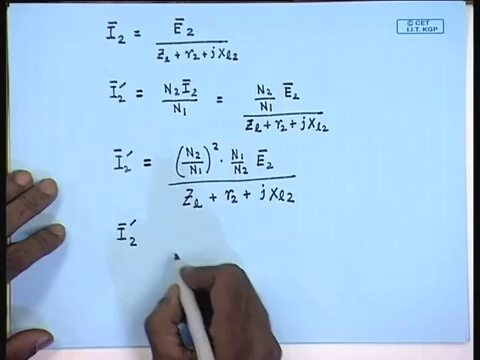 © CET
I.I.T. KGP
Ī₂ = Ē₂ / (Z_l + r₂ + j x_l2)
Ī₂′ = N₂Ī₂ / N₁ = (N₂/N₁) Ē₂ / (Z_l + r₂ + j x_l2)
Ī₂′ = (N₂/N₁)² · (N₁/N₂) Ē₂ / (Z_l + r₂ + j x_l2)
Ī₂′